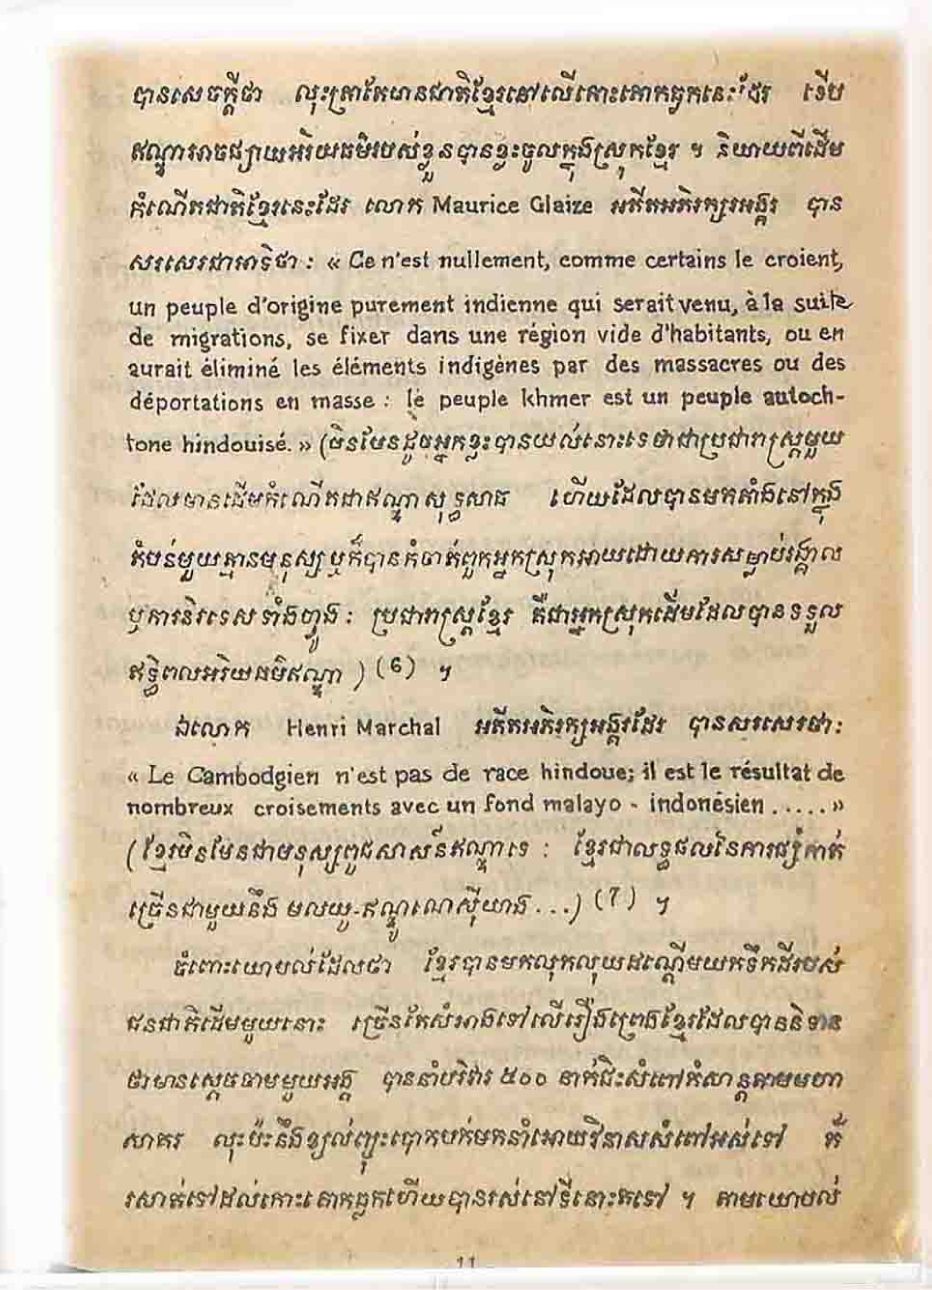 បានសេចក្តីថា លុះត្រាតែមានជាតិខ្មែរនៅលើកោះគោកធ្លកនេះដែរ ទើប
ឥណ្ឌាអាចផ្សាយអរិយធម៌របស់ខ្លួនបានខ្លះចូលក្នុងស្រុកខ្មែរ ។ និយាយពីដើម
កំណើតជាតិខ្មែរនេះដែរ លោក Maurice Glaize អតីតអភិរក្សអង្គរ បាន
សរសេរជាអាទិ៍ថា : « Ce n'est nullement, comme certains le croient,
un peuple d'origine purement indienne qui serait venu, à la suite
de migrations, se fixer dans une région vide d'habitants, ou en
aurait éliminé les éléments indigènes par des massacres ou des
déportations en masse : le peuple khmer est un peuple autoch-
tone hindouisé. » (មិនមែនដូចអ្នកខ្លះបានយល់នោះទេថាជាប្រជារាស្ត្រមួយ
ដែលមានដើមកំណើតជាឥណ្ឌាសុទ្ធសាធ ហើយដែលបានមកតាំងនៅក្នុង
តំបន់មួយគ្មានមនុស្ស ឬក៏បានកំចាត់ពួកអ្នកស្រុកអាយដោយការសម្លាប់រង្គាល
ឬការនិរទេសទាំងហ្វូង : ប្រជារាស្ត្រខ្មែរ គឺជាអ្នកស្រុកដើមដែលបានទទួល
ឥទ្ធិពលអរិយធម៌ឥណ្ឌា ) (6) ។
ឯលោក Henri Marchal អតីតអភិរក្សអង្គរដែរ បានសរសេរថា :
« Le Cambodgien n'est pas de race hindoue; il est le résultat de
nombreux croisements avec un fond malayo - indonésien ..... »
(ខ្មែរមិនមែនជាមនុស្សពូជសាសន៍ឥណ្ឌាទេ : ខ្មែរជាលទ្ធផលនៃការផ្សំកាត់
ច្រើនជាមួយនឹង មលយូ-ឥណ្ឌូណេស៊ីយាង ...) (7) ។
ចំពោះយោបល់ដែលថា ខ្មែរបានមកលុកលុយដណ្តើមយកទឹកដីរបស់
ជនជាតិដើមមួយនោះ ច្រើនតែសំអាងទៅលើរឿងព្រេងខ្មែរដែលបាននិទាន
ថាមានស្តេចចាមមួយអង្គ បាននាំបរិវារ ៥០០ នាក់ជិះសំពៅកំសាន្តតាមមហា
សាគរ លុះប៉ះនឹងខ្យល់ព្យុះបោកបក់មកនាំអោយវិនាសសំពៅអស់ទៅ ក៏
រសាត់ទៅដល់កោះគោកធ្លកហើយបានរស់នៅទីនោះតទៅ ។ តាមយោបល់
11